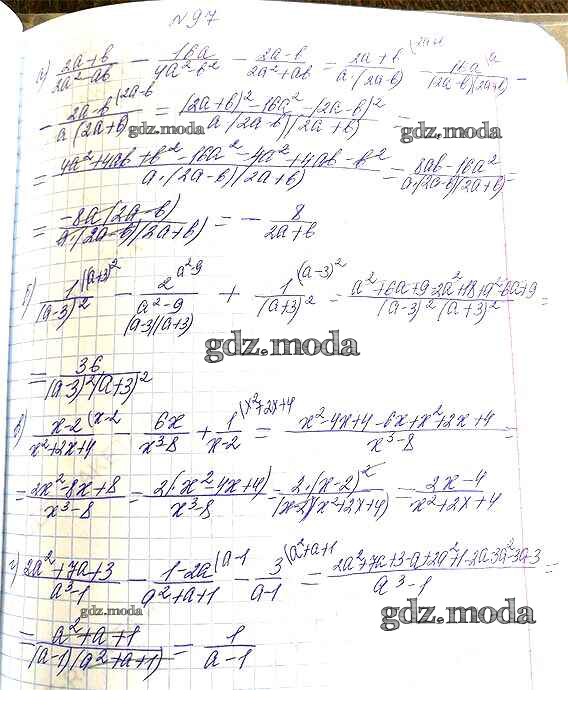 №97
а) (2a+b)/(2a²-ab) - 16a/(4a²-b²) - (2a-b)/(2a²+ab) = (2a+b)/(a·(2a-b)) ^(2a+b - 16a/((2a-b)(2a+b)) ^(a -
- (2a-b)/(a·(2a+b)) ^(2a-b = ((2a+b)²-16a²-(2a-b)²)/(a·(2a-b)(2a+b)) =
gdz.moda gdz.moda
= (4a²+4ab+b²-16a²-4a²+4ab-b²)/(a·(2a-b)(2a+b)) = (8ab-16a²)/(a·(2a-b)(2a+b)) =
= (-8a(2a-b))/(a·(2a-b)(2a+b)) = - 8/(2a+b)
б) 1/(a-3)² ^(a+3)² - 2/(a²-9) ^(a²-9 + 1/(a+3)² ^(a-3)² = (a²+6a+9-2a²+18+a²-6a+9)/((a-3)²(a+3)²) =
(a-3)(a+3)
gdz.moda
= 36/((a-3)²(a+3)²)
в) (x-2)/(x²+2x+4) ^(x-2 - 6x/(x³-8) + 1/(x-2) ^(x²+2x+4 = (x²-4x+4-6x+x²+2x+4)/(x³-8) =
= (2x²-8x+8)/(x³-8) = 2(x²-4x+4)/(x³-8) = 2·(x-2)²/((x-2)(x²+2x+4)) = (2x-4)/(x²+2x+4)
г) (2a²+7a+3)/(a³-1) - (1-2a)/(a²+a+1) ^(a-1 - 3/(a-1) ^(a²+a+1 = (2a²+7a+3-a+2a²+1-2a-3a²-3a-3)/(a³-1) =
gdz.moda gdz.moda
= (a²+a+1)/((a-1)(a²+a+1)) = 1/(a-1)